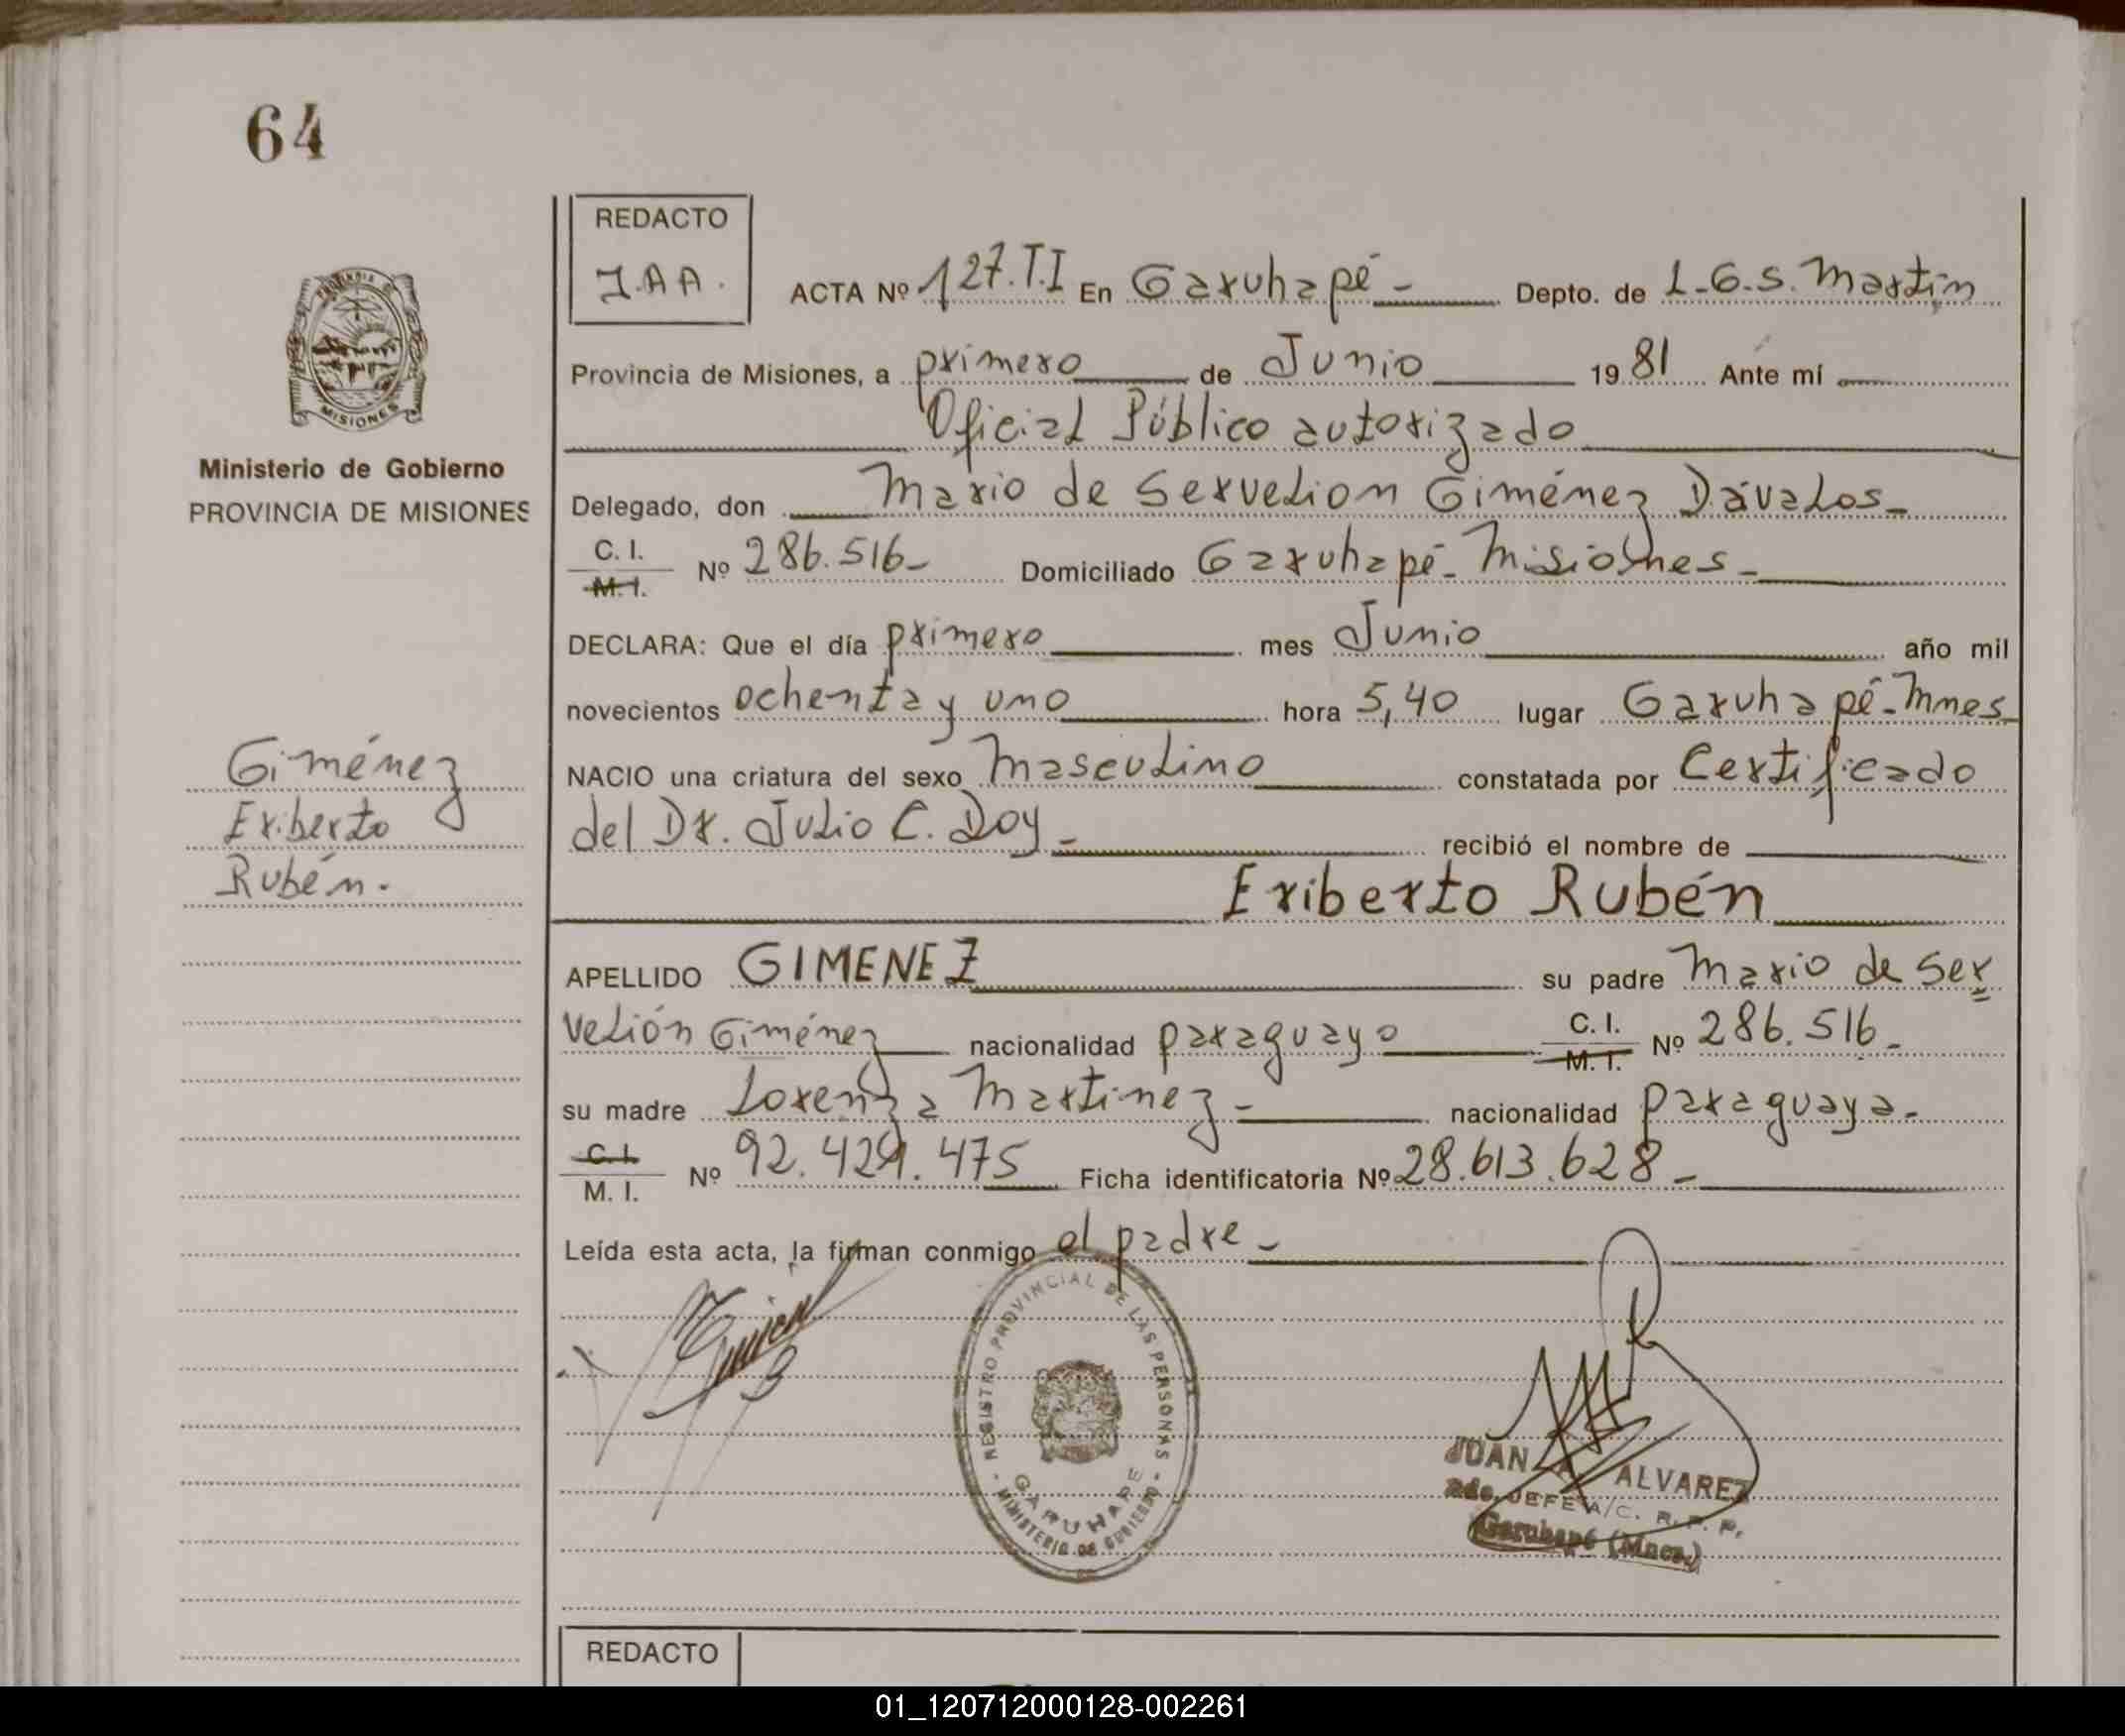 64
REDACTO
J.A.A.
ACTA Nº 127.T.I En Garuhapé- Depto. de L.G.S. Martín
Provincia de Misiones, a primero de Junio 1981 Ante mí
Oficial Público autorizado
Ministerio de Gobierno
PROVINCIA DE MISIONES
Delegado, don Mario de Servelion Giménez Dávalos-
C. I.
M. I. Nº 286.516- Domiciliado Garuhapé- Misiones-
DECLARA: Que el día primero mes Junio año mil
novecientos ochenta y uno hora 5,40 lugar Garuhapé-Mnes
Giménez
Eriberto
Rubén.
NACIO una criatura del sexo Masculino constatada por Certificado
del Dr. Julio C. Doy- recibió el nombre de
Eriberto Rubén
APELLIDO GIMENEZ su padre Mario de Ser
velión Giménez nacionalidad paraguayo C. I. M. I. Nº 286.516-
su madre Lorenza Martinez- nacionalidad paraguaya-
C. I.
M. I. Nº 92.421.475 Ficha identificatoria Nº 28.613.628-
Leída esta acta, la firman conmigo el padre-
REGISTRO PROVINCIAL DE LAS PERSONAS
GARUHAPE
MINISTERIO DE GOBIERNO
JUAN A. ALVAREZ
2do. JEFE A/C. R. P. P.
Garuhapé (Mnes.)
REDACTO
01_120712000128-002261